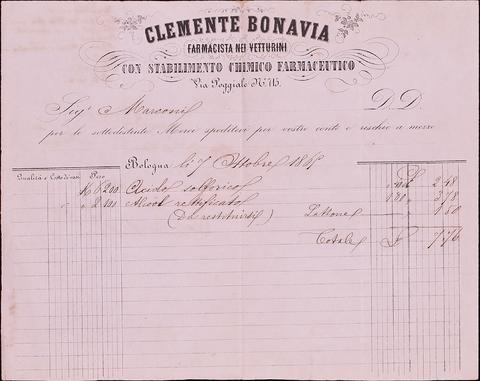 CLEMENTE BONAVIA
FARMACISTA NEI VETTURINI
CON STABILIMENTO CHIMICO FARMACEUTICO
Via Poggiale N. 715.
Sig. Marconi D. D.
per le sottodistinte Merci speditevi per vostro conto e rischio a mezzo
Bologna li 7 Ottobre 186
Qualità e Costo di vasi Peso
K 6 200 Acido solforico 2 48
2 100 Alcool rettificato 1 80 3 78
(Da restituirsi) Lattone 1 50
Totale 7 76